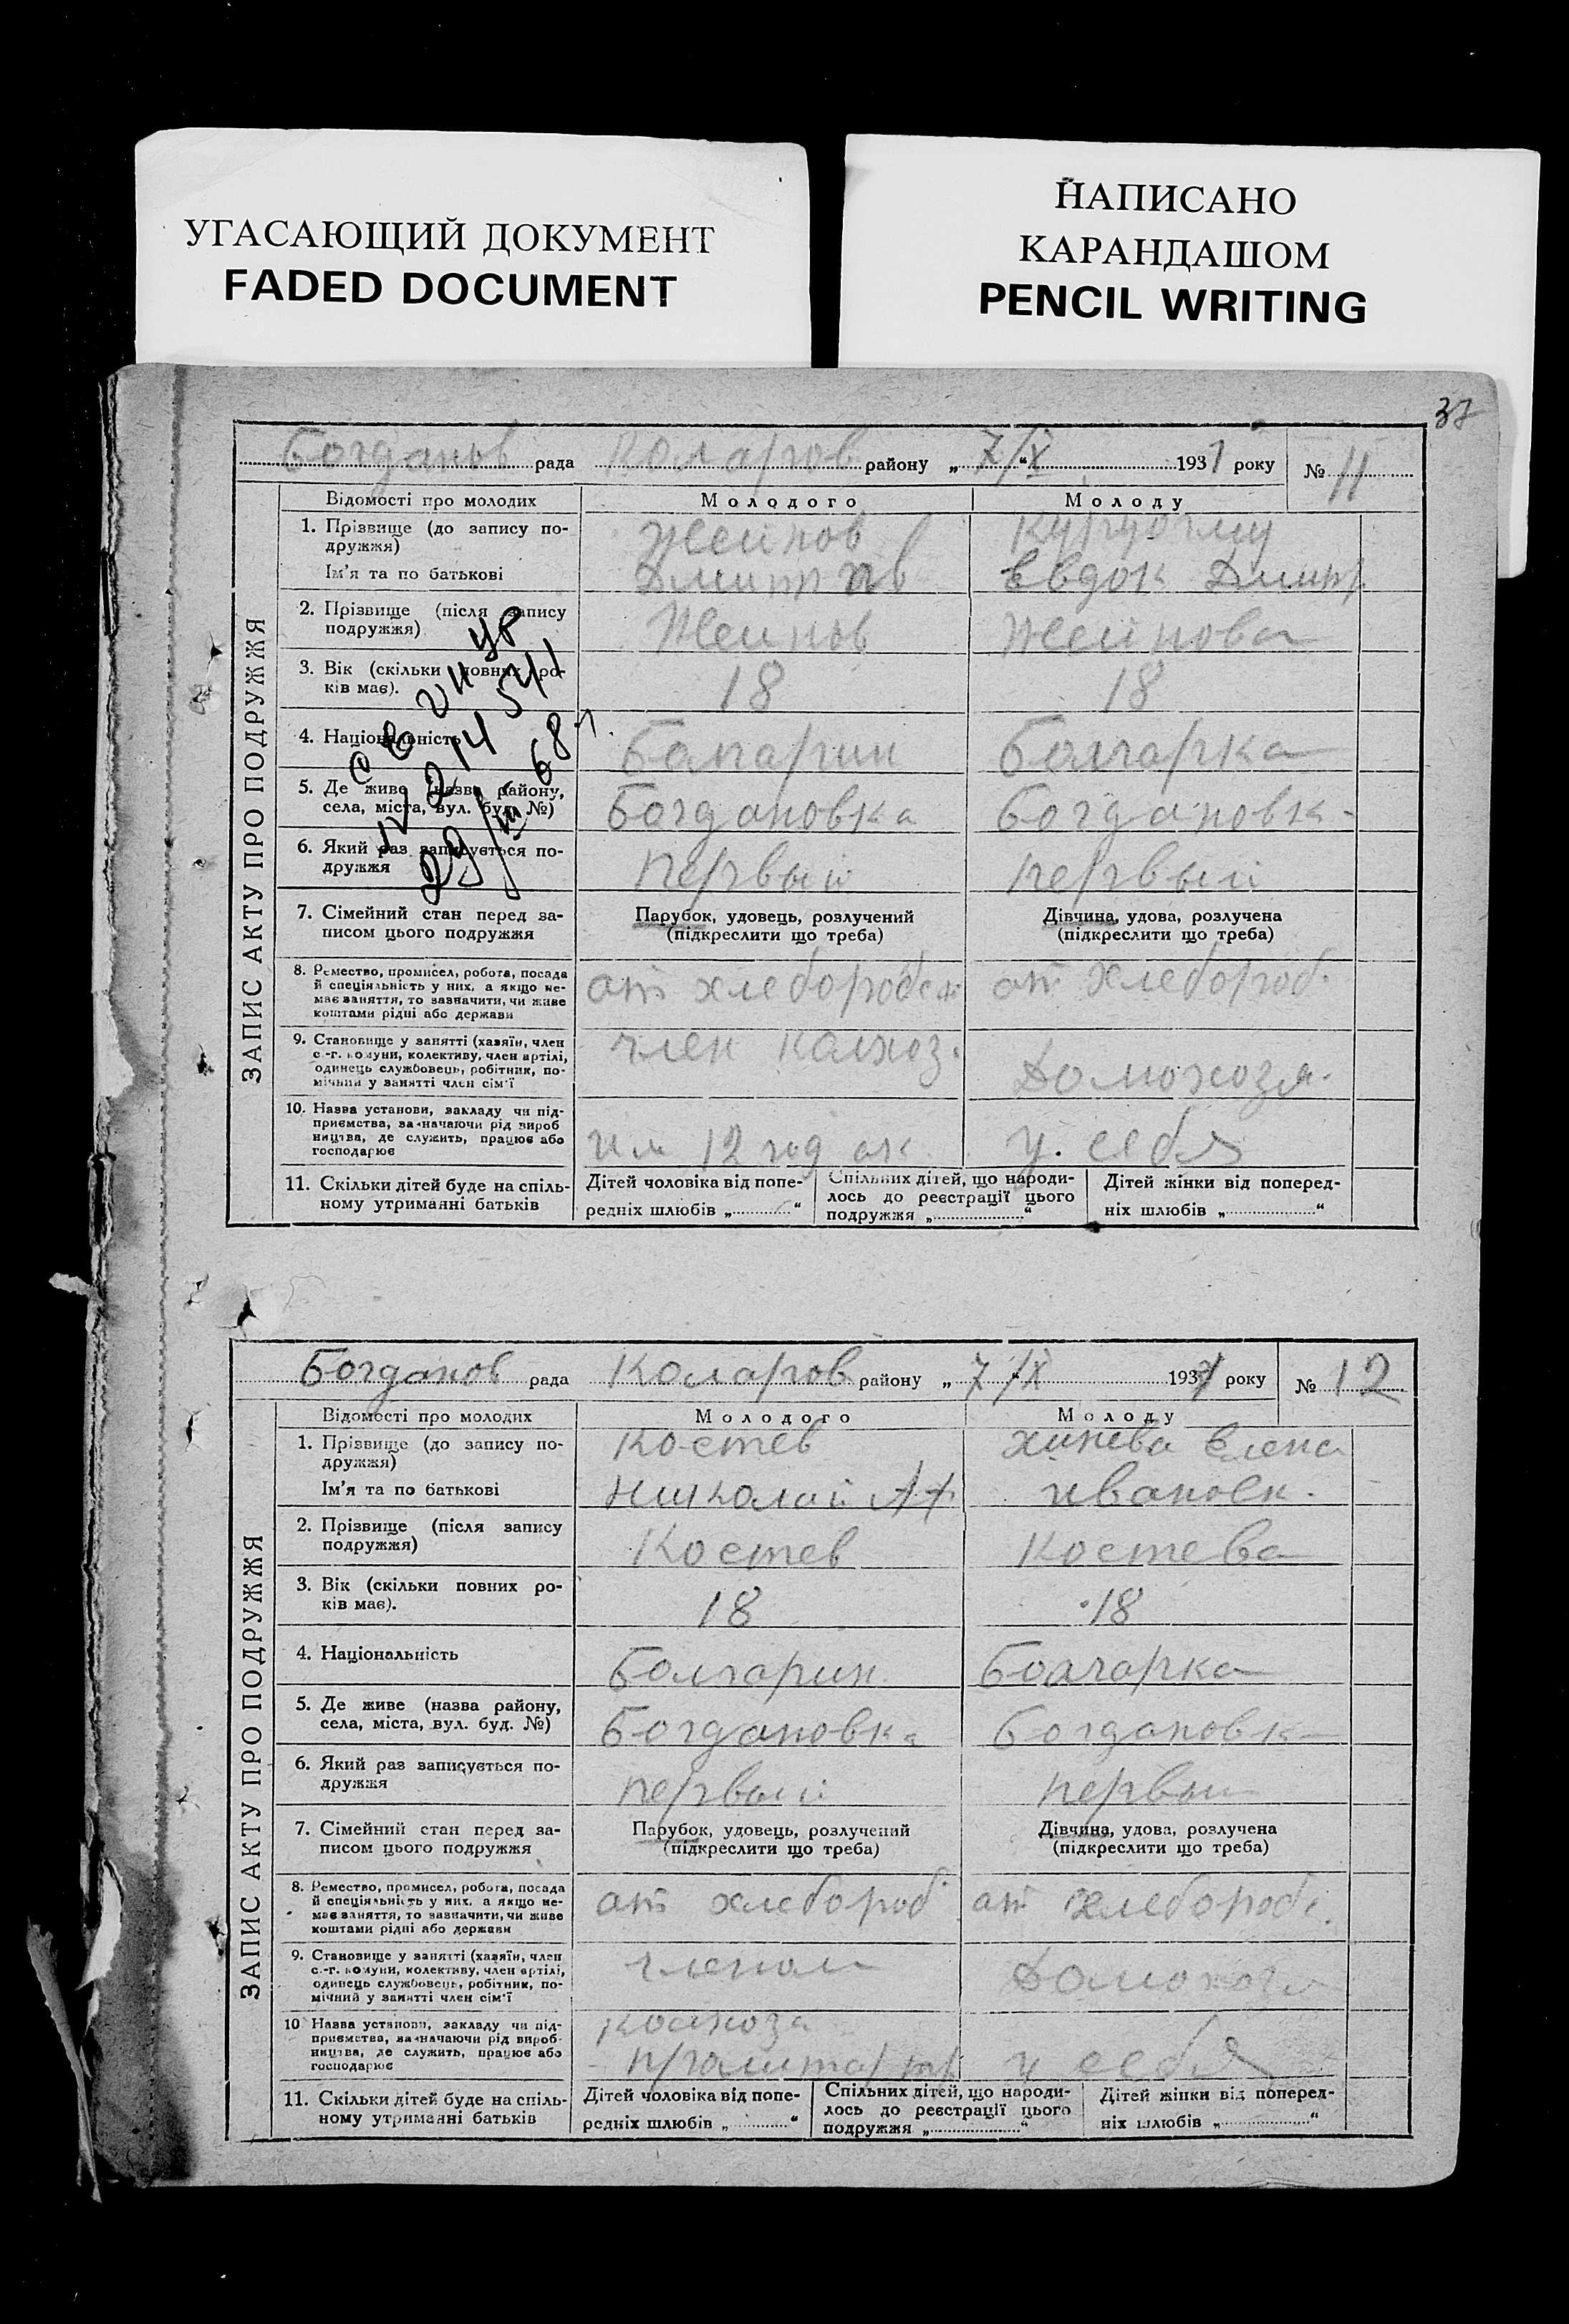 УГАСАЮЩИЙ ДОКУМЕНТ
FADED DOCUMENT
НАПИСАНО
КАРАНДАШОМ
PENCIL WRITING
37
ЗАПИС АКТУ ПРО ПОДРУЖЖЯ
Богданов рада Коларов району „ 7/X “ 1931 року № 11
Відомості про молодих Молодого Молоду
1. Прізвище (до запису по-
дружжя) Жейнов
Ім'я та по батькові Дмитр Евдок Дмит
2. Прізвище (після запису
подружжя) Жейнов Жейнова
3. Вік (скільки повних ро-
ків має). 18 18
4. Національність Болгарин Болгарка
5. Де живе (назва району,
села, міста, вул. буд. №) Богдановка Богдановка
6. Який раз записується по-
дружжя первый первый
7. Сімейний стан перед за-
писом цього подружжя
Парубок, удовець, розлучений
(підкреслити що треба)
Дівчина, удова, розлучена
(підкреслити що треба)
8. Ремество, промисел, робота, посада
й спеціяльність у них, а якщо не-
має заняття, то зазначити, чи живе
коштами рідні або держави
хлебороб хлебороб.
9. Становище у занятті (хазяїн, член
с.-г. комуни, колективу, член артілі,
одинець службовець, робітник, по-
мічний у занятті член сім'ї
член колхоз. Домохозя.
10. Назва установи, закладу чи під-
приємства, зазначаючи рід вироб
ництва, де служить, працює або
господарює
им 12 год у себя
11. Скільки дітей буде на спіль-
ному утриманні батьків
Дітей чоловіка від попе-
редніх шлюбів „ “
Спільних дітей, що народи-
лось до реєстрації цього
подружжя „ “
Дітей жінки від поперед-
ніх шлюбів „ “
ЗАПИС АКТУ ПРО ПОДРУЖЖЯ
Богданов рада Коларов району „ 7/X “ 1931 року № 12
Відомості про молодих Молодого Молоду
1. Прізвище (до запису по-
дружжя) Костев Хинева Елена
Ім'я та по батькові Николай Ивановн.
2. Прізвище (після запису
подружжя) Костев Костева
3. Вік (скільки повних ро-
ків має). 18 18
4. Національність Болгарин Болгарка
5. Де живе (назва району,
села, міста, вул. буд. №) Богдановка Богдановк
6. Який раз записується по-
дружжя первый первый
7. Сімейний стан перед за-
писом цього подружжя
Парубок, удовець, розлучений
(підкреслити що треба)
Дівчина, удова, розлучена
(підкреслити що треба)
8. Ремество, промисел, робота, посада
й спеціяльність у них, а якщо не-
має заняття, то зазначити, чи живе
коштами рідні або держави
хлебороб хлебороб.
9. Становище у занятті (хазяїн, член
с.-г. комуни, колективу, член артілі,
одинець службовець, робітник, по-
мічний у занятті член сім'ї
членом Домохозя
10 Назва установи, закладу чи під-
приємства, зазначаючи рід вироб-
ництва, де служить, працює або
господарює
колхоза
у себя
11. Скільки дітей буде на спіль-
ному утриманні батьків
Дітей чоловіка від попе-
редніх шлюбів „ “
Спільних дітей, що народи-
лось до реєстрації цього
подружжя „ “
Дітей жінки від поперед-
ніх шлюбів „ “